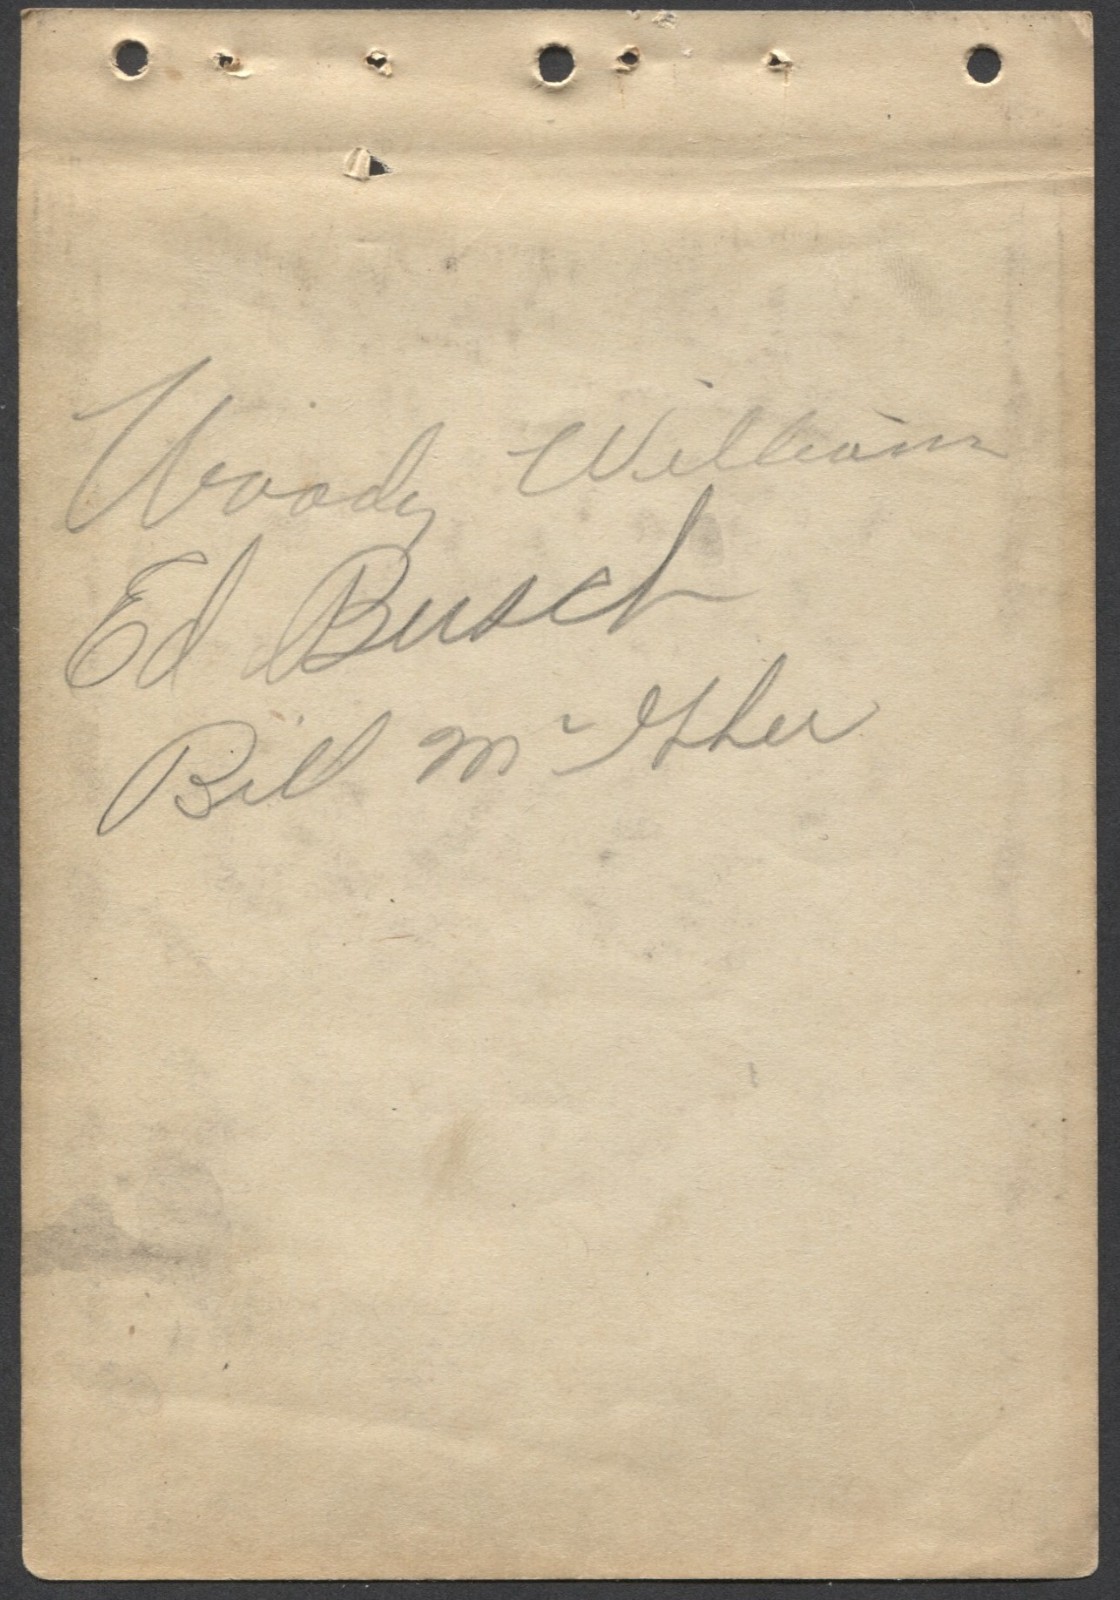 Woody Williams
Ed Busch
Bill McGhee